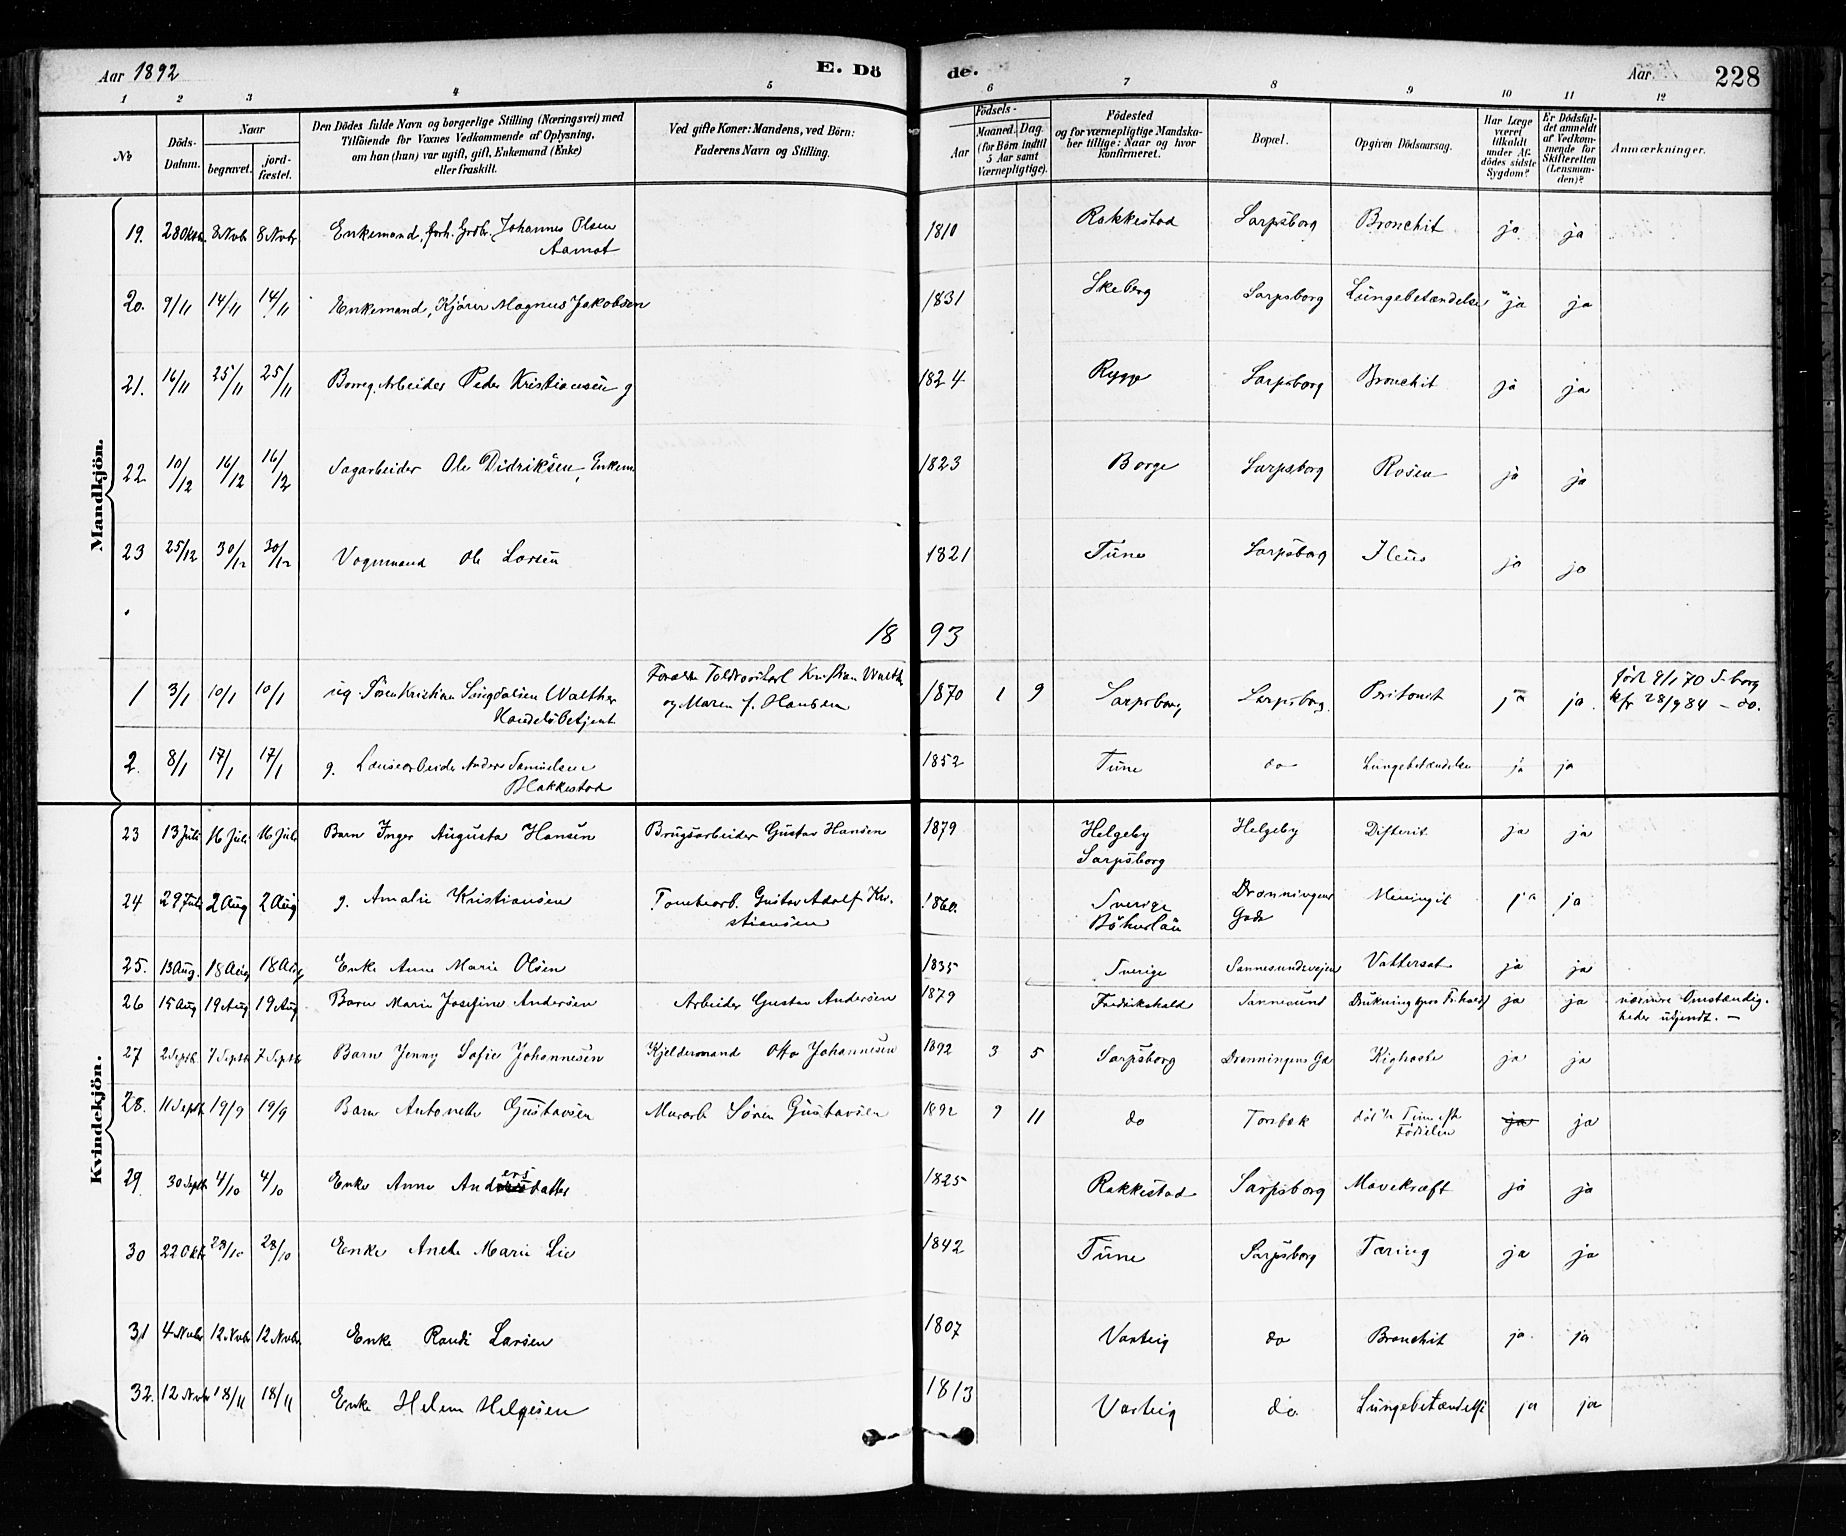 Aar 1892 E. Dö de. Aar. 228
1 2 3 4 5 6 7 8 9 10 11 12
No
Döds-Datum.
Naar begravet. jordfæstet.
Den Dödes fulde Navn og borgerlige Stilling (Næringsvei) med
Tilföiende for Voxnes Vedkommende af Oplysning,
om han (hun) var ugift, gift, Enkemand (Enke)
eller fraskilt.
Ved gifte Koner: Mandens, ved Börn:
Faderens Navn og Stilling.
Födsels-
Aar Maaned. Dag.
(for Börn indtil 5 Aar samt Værnepligtige).
Födested
og for værnepligtige Mandskaber tillige: Naar og hvor konfirmeret.
Bopæl.
Opgiven Dödsaarsag.
Har Læge været tilkaldt under Afdödes sidste Sygdom?
Er Dödsfaldet anmeldt af Vedkommende for Skifteretten (Lensmanden)?
Anmærkninger.
Mandkjön.
19. 28 Oktb. 8 Novbr 8 Novbr Enkemand, forh. Grdbr. Johannes Olsen 1810 Rakkestad Sarpsborg Bronchit ja ja
Aamot
20. 9/11 14/11 14/11 Enkemand, Kjører Magnus Jakobsen 1831 Skeberg Sarpsborg Lungebetændelse ja ja
21. 16/11 25/11 25/11 Borreg. Arbeider Peder Kristiansen g 1824 Rygge Sarpsborg Bronchit ja ja
22 10/12 16/12 16/12 Sagarbeider Ole Didriksen, Enkem 1823 Borge Sarpsborg Rosen ja ja
23 25/12 30/12 30/12 Vognmand Ole Larsen 1821 Tune Sarpsborg Ileus ja ja
1893
1 3/1 10/1 10/1 ug. Søren Kristian Walther Kristian Walth 1870 1 9 Sarpsborg Sarpsborg. Peritonit ja ja. født 9/1 70 S.borg
Handelsbetjent og Maren f. Hansen kfr 28/9 84 – do.
2. 8/1 17/1 17/1 g. Lænsearbeider Anders Samuelsen 1852 Tune do Lungebetændelse ja ja
Blakkestad
Kvindekjön.
23 13 Juli 16 Juli 16 Juli Barn Inger Augusta Hansen Brugsarbeider Gustav Hansen 1879 Helgeby Helgeby Difterit ja ja
Sarpsborg
24 29 Juli 2 Aug 2 Aug g. Amalie Kristiansen Tomtearb. Gustav Adolf Kri- 1860. Sverige Dronningens Meningit ja ja
stiansen Bohuslän Gade
25. 13 Aug. 18 Aug 18 Aug Enke Anne Marie Olsen 1835 Sverige Sannesundsvejen Vattersot ja ja
26 15 Aug 19 Aug 19 Aug Barn Marie Josefine Andersen Arbeider Gustav Andersen 1879 Fredrikshald Sannesund Drukning ja ja nærmere Omstændig-
heder ukjendt. –
27 2 Septb 7 Septb 7 Septb Barn Jenny Sofie Johannesen Kjeldermand Otto Johannesen 1892 3 5 Sarpsborg Dronningens Ga Kighoste ja ja
28. 11 Septb 19/9 19/9 Barn Antonette Gustavsen Murarb Søren Gustavsen 1892 9 11 do Torsbæk død 1/2 Time eft ja ja
Fødselen
29. 30 Septb 4/10 4/10 Enke Anne Andersdatter 1825 Rakkestad Sarpsborg Mavekræft ja ja
30 22 Okt. 28/10 28/10 Enke Anette Marie Lie 1842 Tune Sarpsborg Tæring ja ja
31 4 Novbr 12 Novbr 12 Novbr. Enke Randi Larsen 1807 Varteig do Bronchit ja ja
32. 12 Novbr 18/11 18/11 Enke Helene Helgesen 1813 Varteig do. Lungebetændelse ja ja